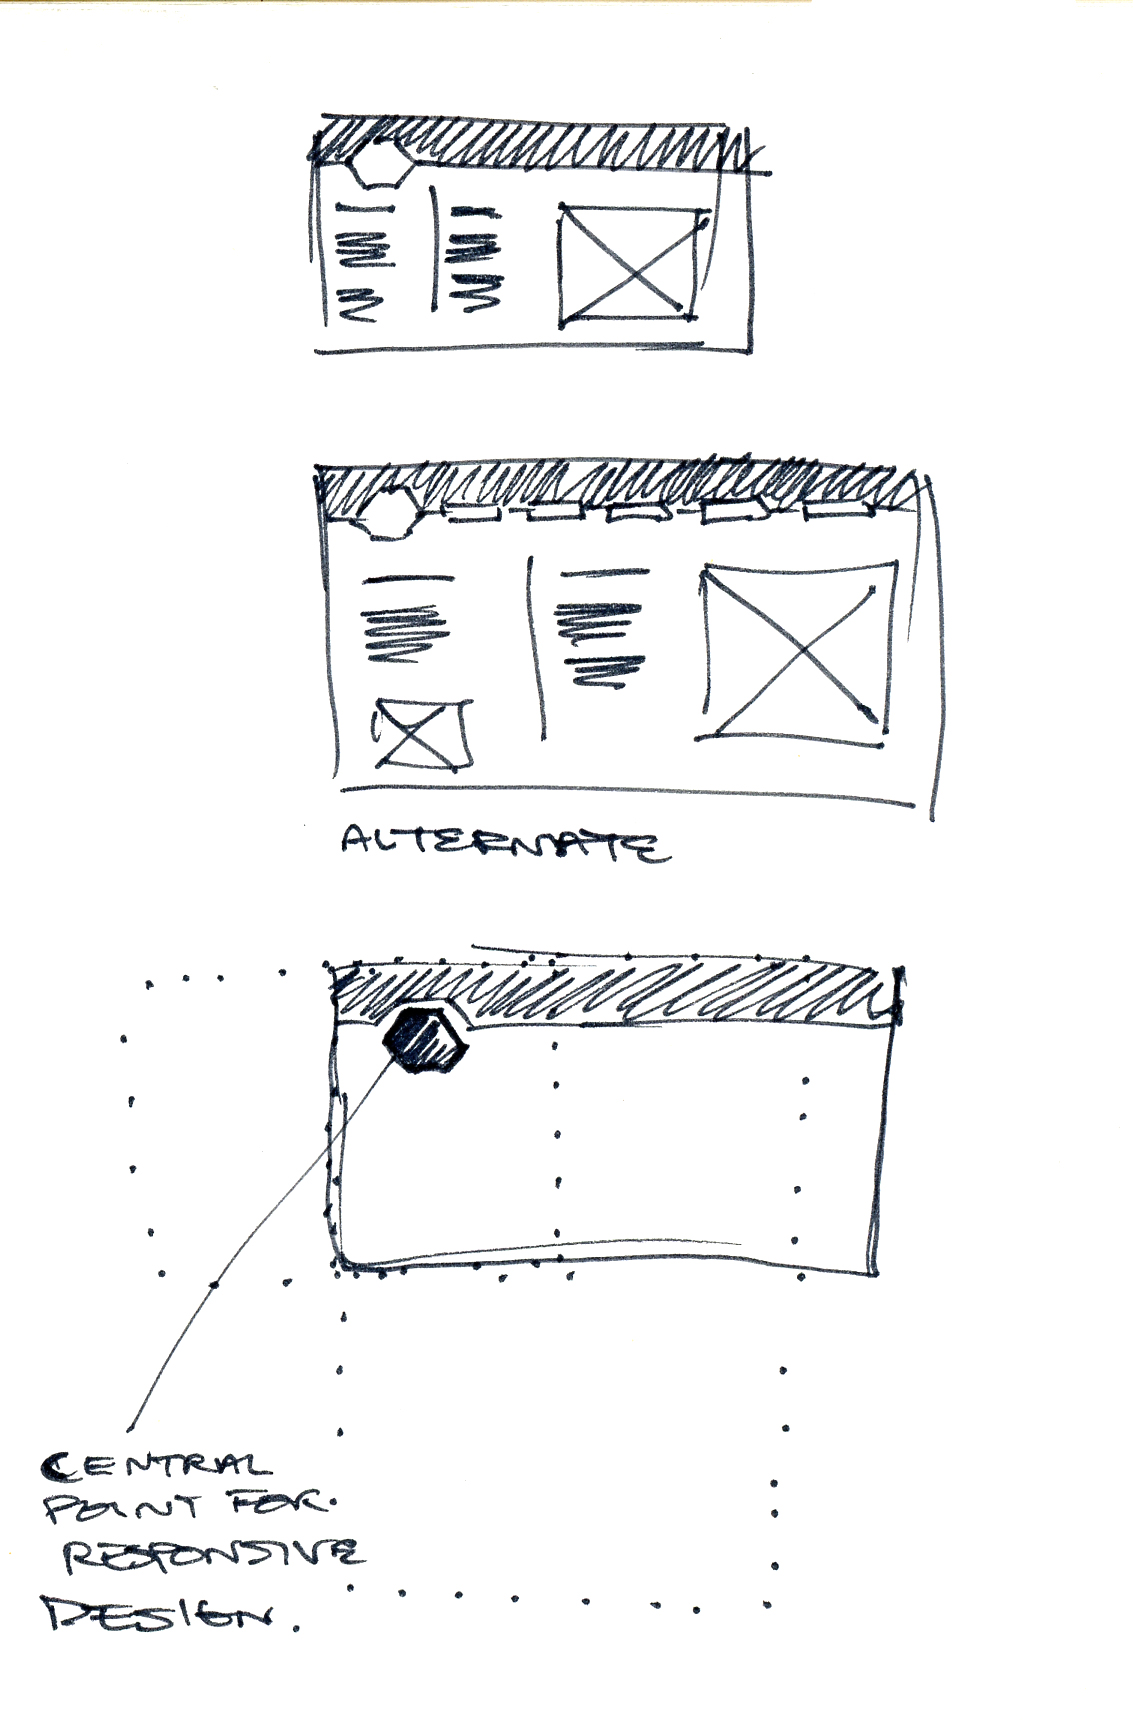 ALTERNATE
CENTRAL
POINT FOR
RESPONSIVE
DESIGN.